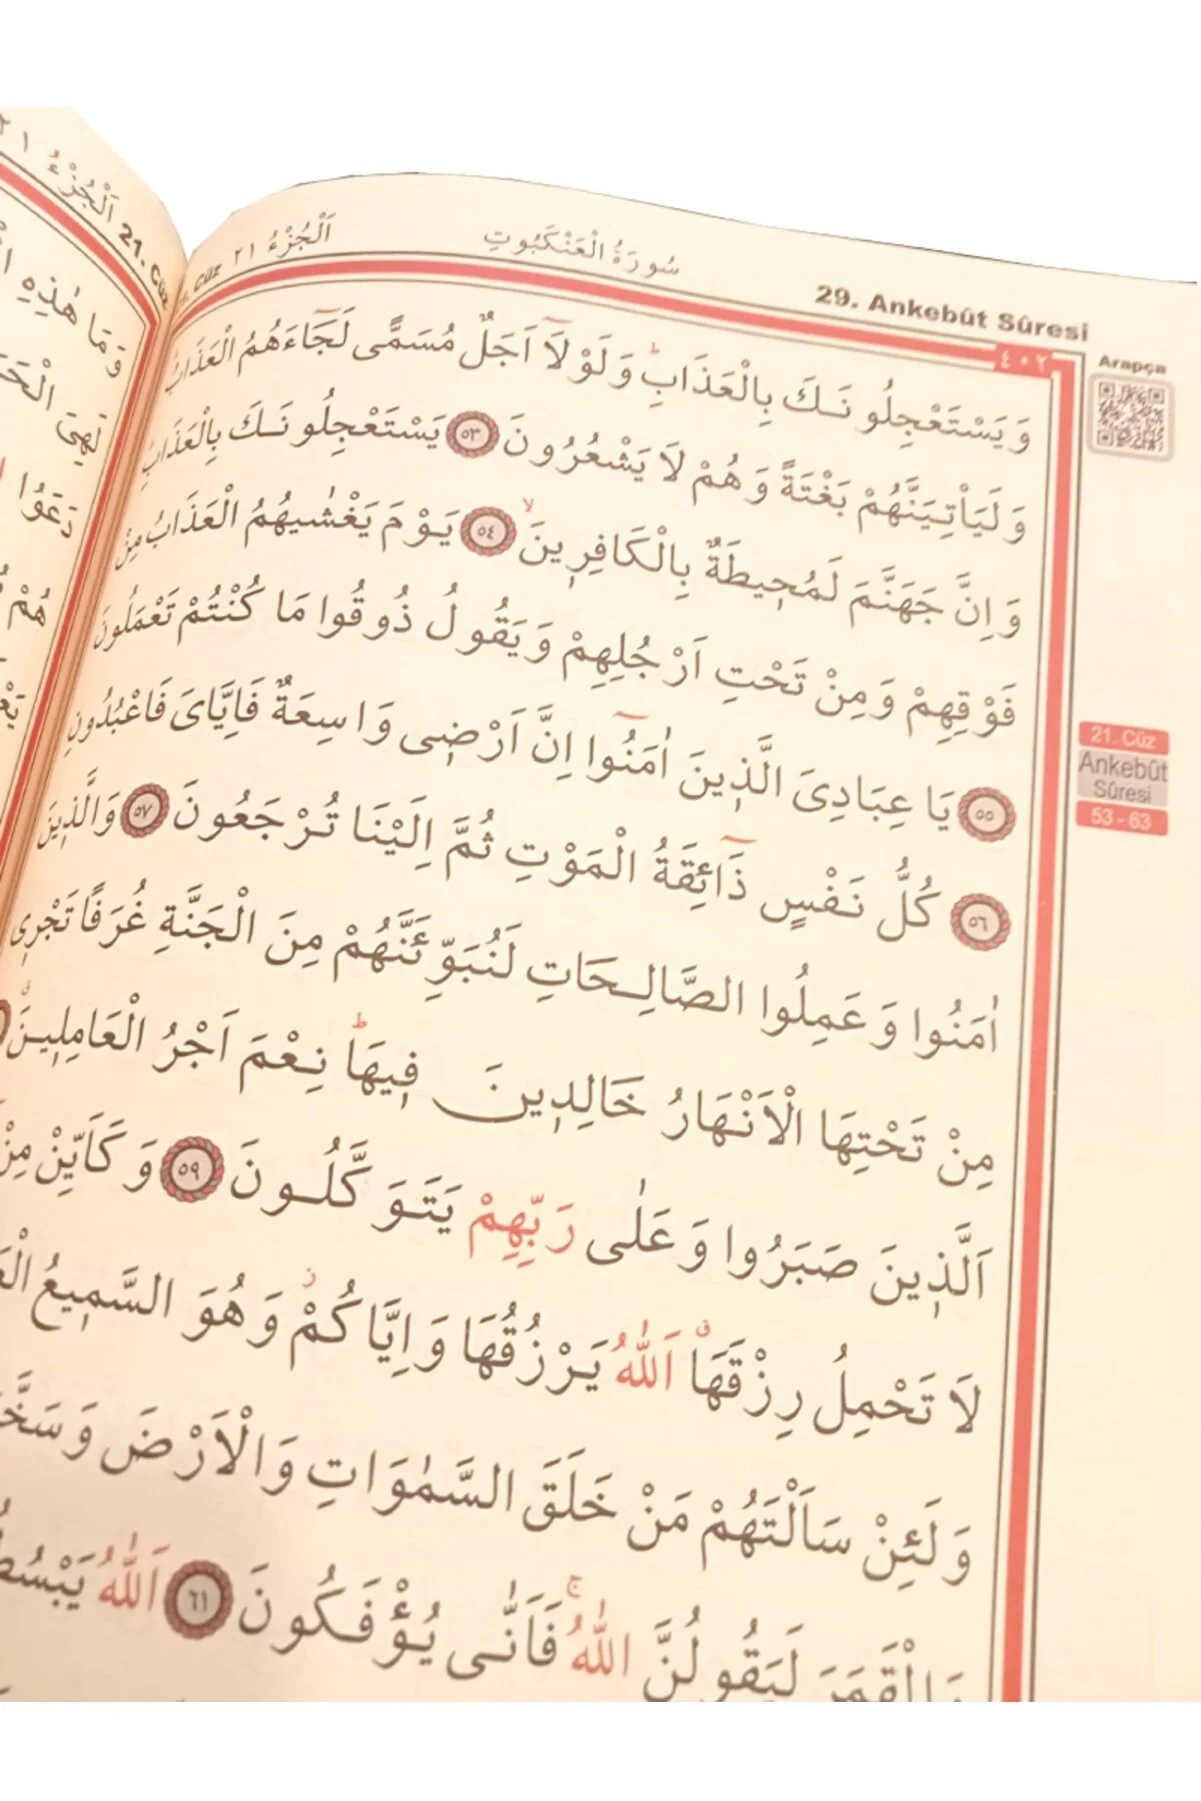 29. Ankebût Sûresi
سُورَةُ الْعَنْكَبُوتِ
اَلْجُزْءُ ٢١
Cüz
٤٠٢
Arapça
وَيَسْتَعْجِلُونَكَ بِالْعَذَابِۜ وَلَوْلَٓا اَجَلٌ مُسَمًّى لَجَٓاءَهُمُ الْعَذَابُ
وَلَيَأْتِيَنَّهُمْ بَغْتَةً وَهُمْ لَا يَشْعُرُونَ ٥٣ يَسْتَعْجِلُونَكَ بِالْعَذَابِ
وَاِنَّ جَهَنَّمَ لَمُحٖيطَةٌ بِالْكَافِرٖينَۙ ٥٤ يَوْمَ يَغْشٰيهُمُ الْعَذَابُ مِنْ
فَوْقِهِمْ وَمِنْ تَحْتِ اَرْجُلِهِمْ وَيَقُولُ ذُوقُوا مَا كُنْتُمْ تَعْمَلُونَ
٥٥ يَا عِبَادِيَ الَّذٖينَ اٰمَنُٓوا اِنَّ اَرْضٖى وَاسِعَةٌ فَاِيَّايَ فَاعْبُدُونِ
٥٦ كُلُّ نَفْسٍ ذَٓائِقَةُ الْمَوْتِ ثُمَّ اِلَيْنَا تُرْجَعُونَ ٥٧ وَالَّذٖينَ
اٰمَنُوا وَعَمِلُوا الصَّالِحَاتِ لَنُبَوِّئَنَّهُمْ مِنَ الْجَنَّةِ غُرَفًا تَجْرٖى
مِنْ تَحْتِهَا الْاَنْهَارُ خَالِدٖينَ فٖيهَاۜ نِعْمَ اَجْرُ الْعَامِلٖينَۗ
اَلَّذٖينَ صَبَرُوا وَعَلٰى رَبِّهِمْ يَتَوَكَّلُونَ ٥٩ وَكَاَيِّنْ مِنْ
لَا تَحْمِلُ رِزْقَهَاۗ اَللّٰهُ يَرْزُقُهَا وَاِيَّاكُمْۘ وَهُوَ السَّمٖيعُ
وَلَئِنْ سَاَلْتَهُمْ مَنْ خَلَقَ السَّمٰوَاتِ وَالْاَرْضَ
وَالْقَمَرَ لَيَقُولُنَّ اللّٰهُۚ فَاَنّٰى يُؤْفَكُونَ ٦١ اَللّٰهُ
21. Cüz
Ankebût
Sûresi
53 - 63
اَلْجُزْءُ ٢١
21. Cüz
وَمَا هٰذِهِ
لَهِيَ
دَعَوُا
هُمْ